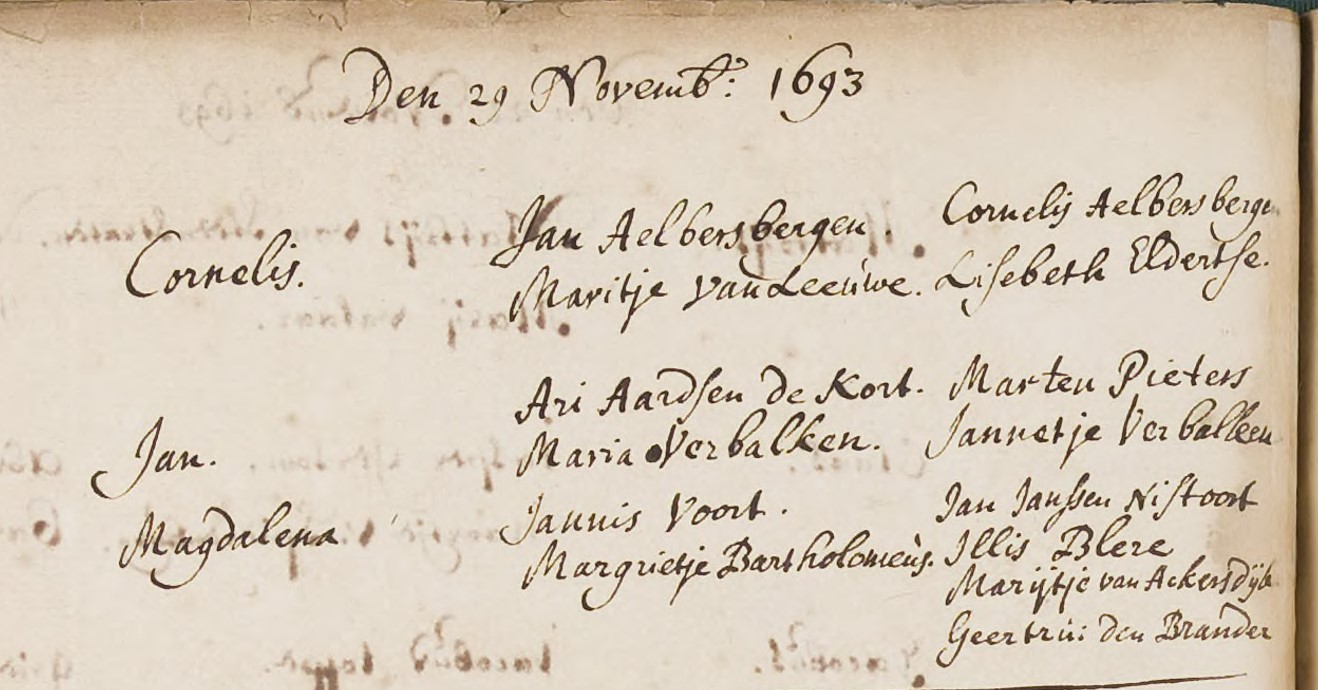 Den 29 Novemb: 1693
Cornelis.
Jan Aelbersbergen.
Maritje Van Leeuwe.
Cornelij Aelbersbergen
Lisebeth Eldertse.
Jan.
Ari Aardsen de Kort.
Maria Verbalken.
Marten Pieters
Jannetje Verbalken
Magdalena
Jannis Voort.
Margrietje Bartholomeùs.
Jan Janssen Nistoort
Illis Blere
Marijtje van Ackersdijk
Geertrui den Brander